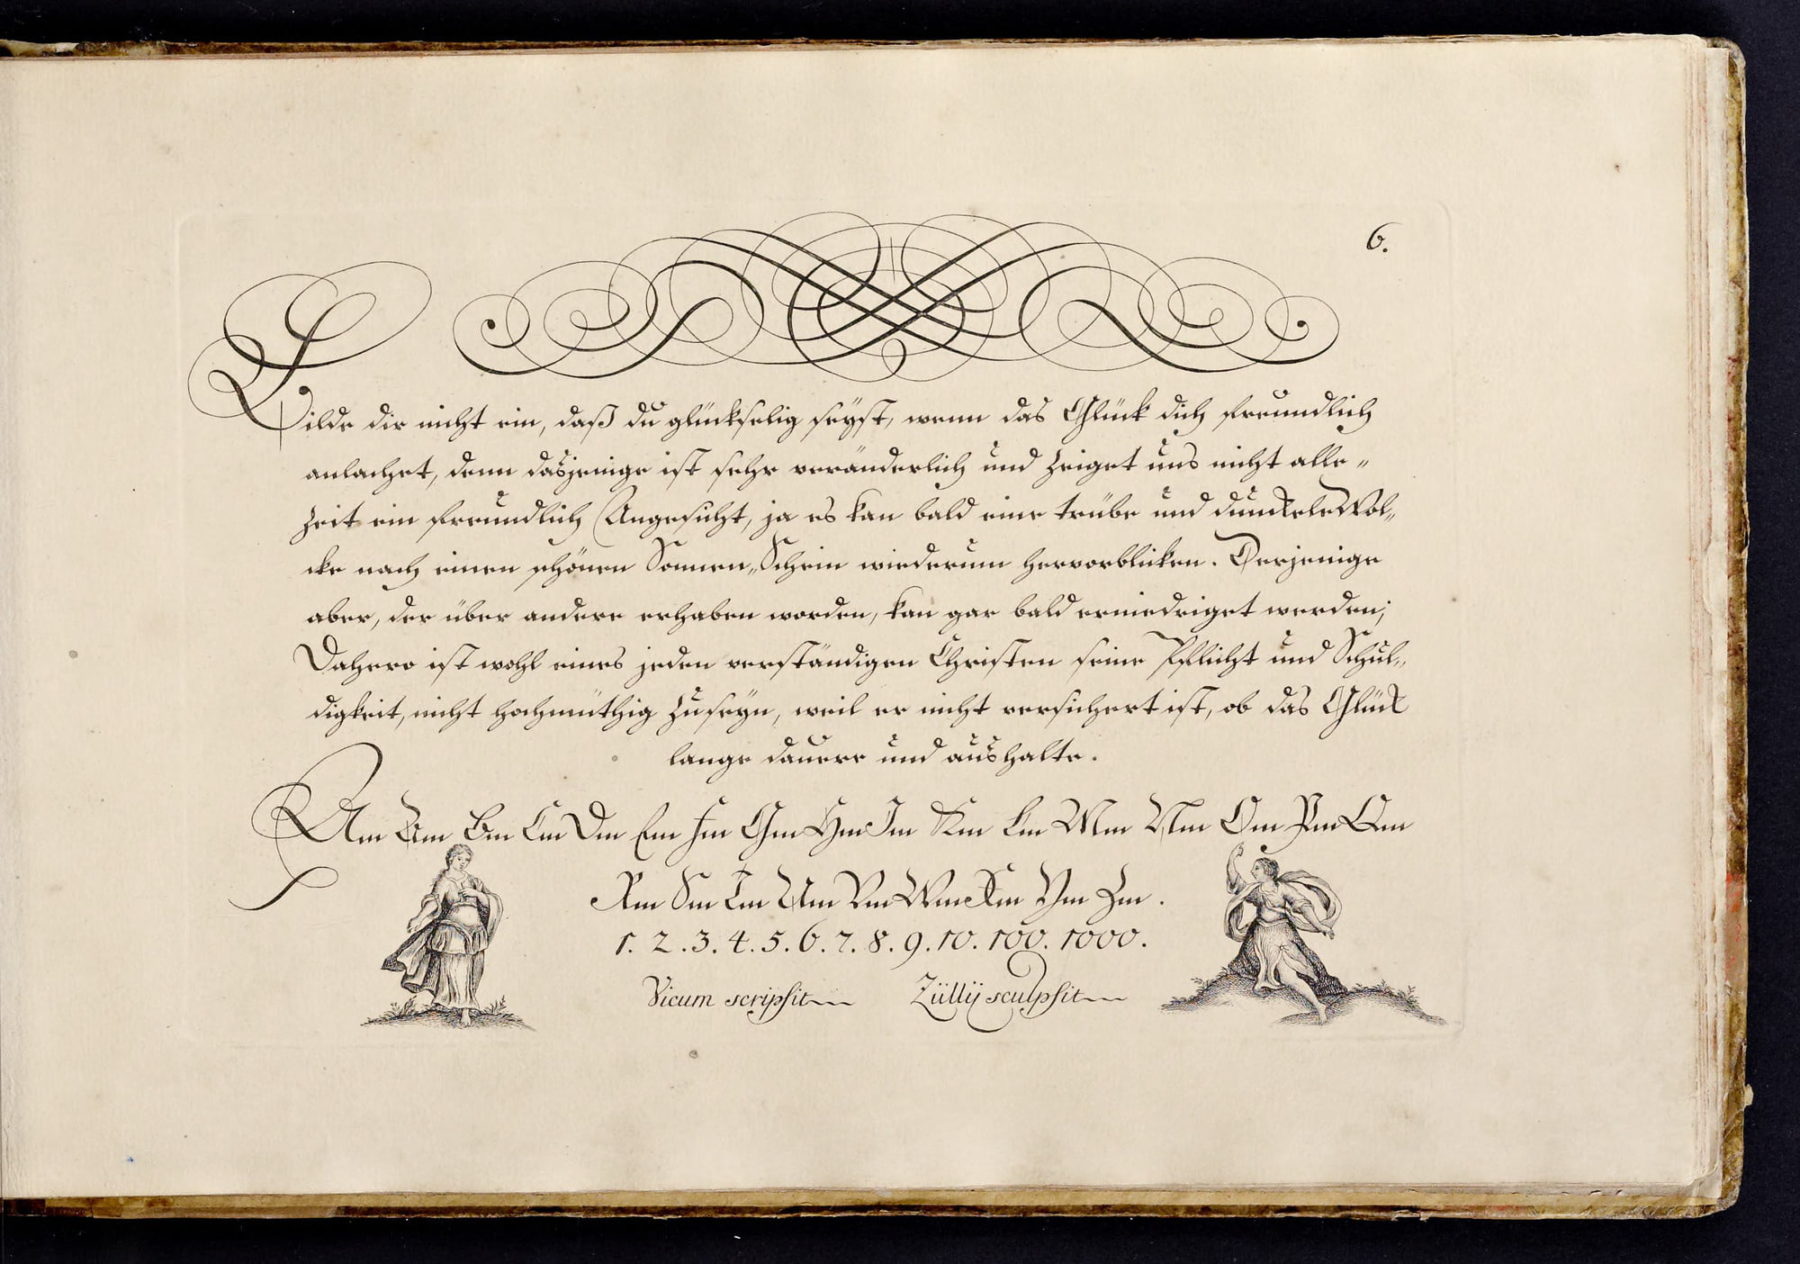 6.
Bilde dir nicht ein, daß du glückselig seyst, wenn das Glück dich freundlich
anlachet, denn dasjenige ist sehr veränderlich und zeiget uns nicht alle„
zeit ein freundlich Angesicht, ja es kan bald eine trübe und dunckele Wol„
cke nach einen schönen Sonnen„Schein wiederum hervorblicken. Derjenige
aber, der über andere erhaben worden, kan gar bald erniedriget werden;
Dahero ist wohl eines jeden verständigen Christen seine Pflicht und Schul„
digkeit, nicht hochmüthig zu seyn, weil er nicht versichert ist, ob das Glück
lange dauere und aushalte.
Am Am Bm Cm Dm Em Fm Gm Hm Im Km Lm Mm Nm Om Pm Qm
Rm Sm Tm Um Vm Wm Xm Ym Zm.
1. 2. 3. 4. 5. 6. 7. 8. 9. 10. 100. 1000.
Vicum scripsit Züllij sculpsit